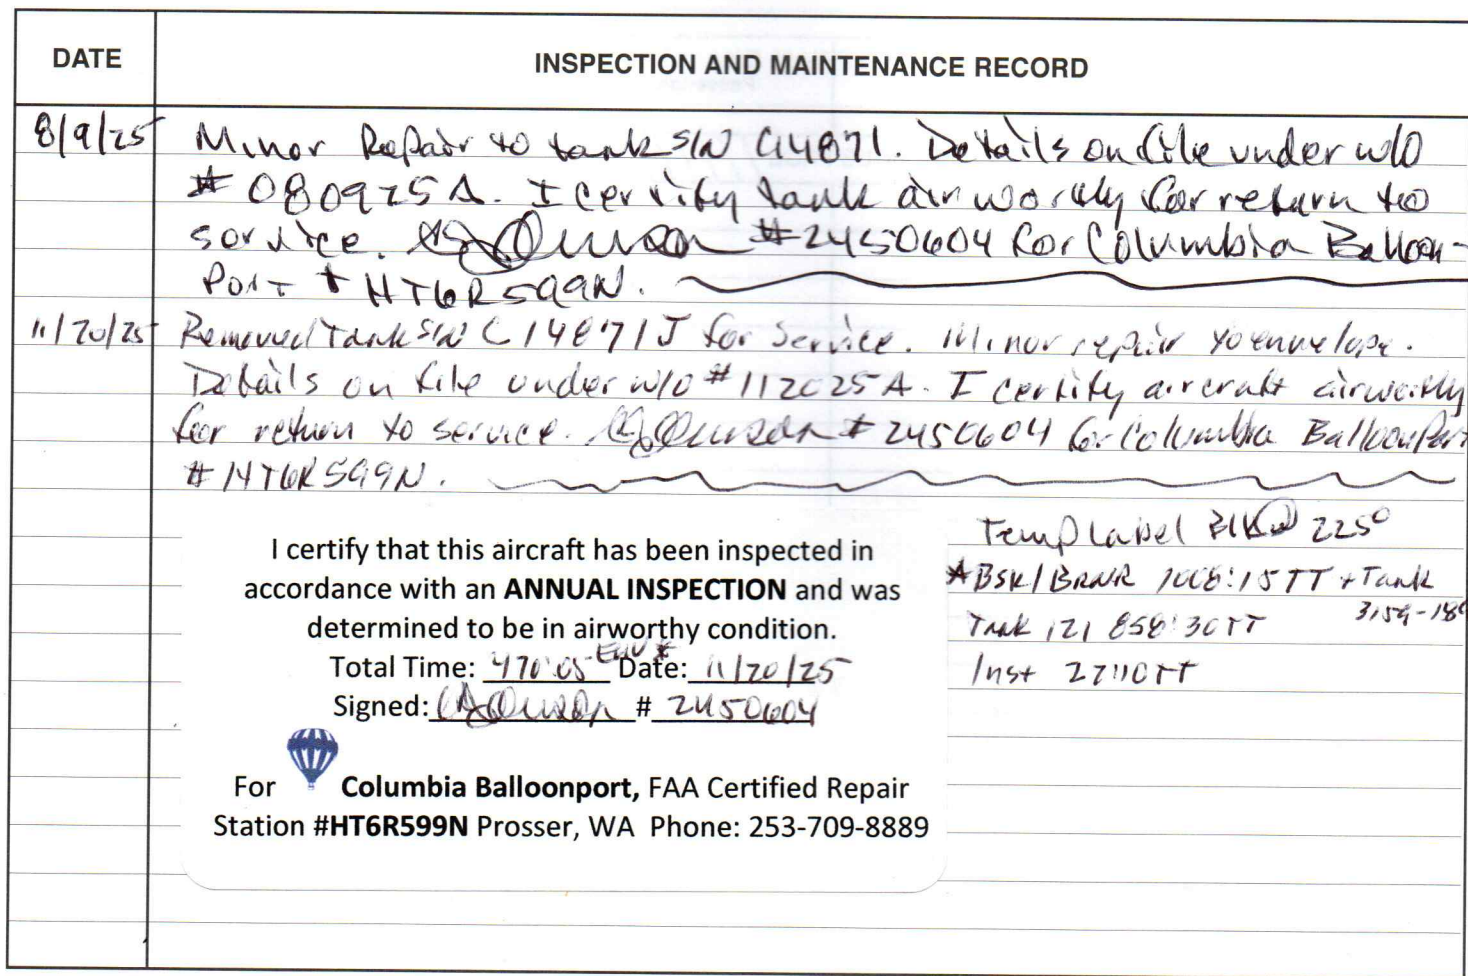 DATE
INSPECTION AND MAINTENANCE RECORD
8/9/25 Minor Repair to tank S/N C14871. Details on file under w/o
# 080925A. I certify tank airworthy for return to
service. #2450604 for Columbia Balloon-
Port # HT6R599N.
11/20/25 Removed Tank S/N C14871J for Service. Minor repair to envelope.
Details on file under w/o #112025A. I certify aircraft airworthy
for return to service. # 2450604 for Columbia BalloonPort
# HT6R599N.
I certify that this aircraft has been inspected in
accordance with an ANNUAL INSPECTION and was
determined to be in airworthy condition.
Total Time: 470:05 ENV* Date: 11/20/25
Signed: # 2450604
For Columbia Balloonport, FAA Certified Repair
Station #HT6R599N Prosser, WA Phone: 253-709-8889
Temp Label Blk@ 225°
*BSK/BRNR 1008:15TT + Tank
Tank 121 858:30TT
Inst 27:10TT